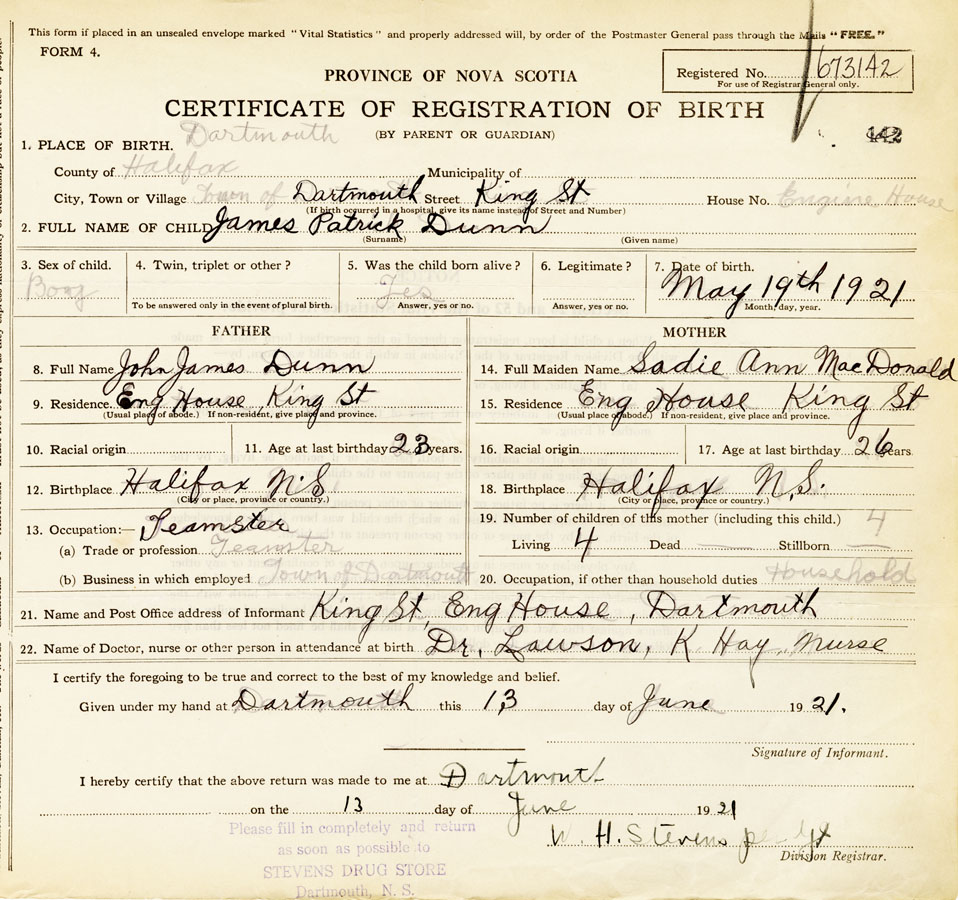 This form if placed in an unsealed envelope marked "Vital Statistics" and properly addressed will, by order of the Postmaster General pass through the Mails "FREE."
FORM 4.
Registered No. 673142
For use of Registrar General only.
PROVINCE OF NOVA SCOTIA
CERTIFICATE OF REGISTRATION OF BIRTH
(BY PARENT OR GUARDIAN)
142
1. PLACE OF BIRTH. Dartmouth
County of Halifax Municipality of
City, Town or Village Town of Dartmouth Street King St House No. Engine House
(If birth occurred in a hospital, give its name instead of Street and Number)
2. FULL NAME OF CHILD James Patrick Dunn
(Surname) (Given name)
3. Sex of child. 4. Twin, triplet or other? 5. Was the child born alive? 6. Legitimate? 7. Date of birth.
Yes May 19th 1921
To be answered only in the event of plural birth. Answer, yes or no. Answer, yes or no. Month, day, year.
FATHER MOTHER
8. Full Name John James Dunn 14. Full Maiden Name Sadie Ann MacDonald
9. Residence. Eng House King St 15. Residence Eng House King St
(Usual place of abode.) If non-resident, give place and province. (Usual place of abode.) If non-resident, give place and province.
10. Racial origin 11. Age at last birthday 23 years. 16. Racial origin 17. Age at last birthday 26 years
12. Birthplace Halifax N.S 18. Birthplace Halifax N.S.
(City or place, province or country.) (City or place, province or country.)
13. Occupation:— Teamster 19. Number of children of this mother (including this child.) 4
(a) Trade or profession Teamster Living 4 Dead Stillborn
(b) Business in which employed Town of Dartmouth 20. Occupation, if other than household duties Household
21. Name and Post Office address of Informant King St, Eng House, Dartmouth
22. Name of Doctor, nurse or other person in attendance at birth Dr, Lawson, K Hay, Nurse
I certify the foregoing to be true and correct to the best of my knowledge and belief.
Given under my hand at Dartmouth this 13 day of June 1921.
Signature of Informant.
I hereby certify that the above return was made to me at Dartmouth
on the 13 day of June 1921
W. H. Stevens
Division Registrar.
Please fill in completely and return
as soon as possible to
STEVENS DRUG STORE
Dartmouth, N. S.